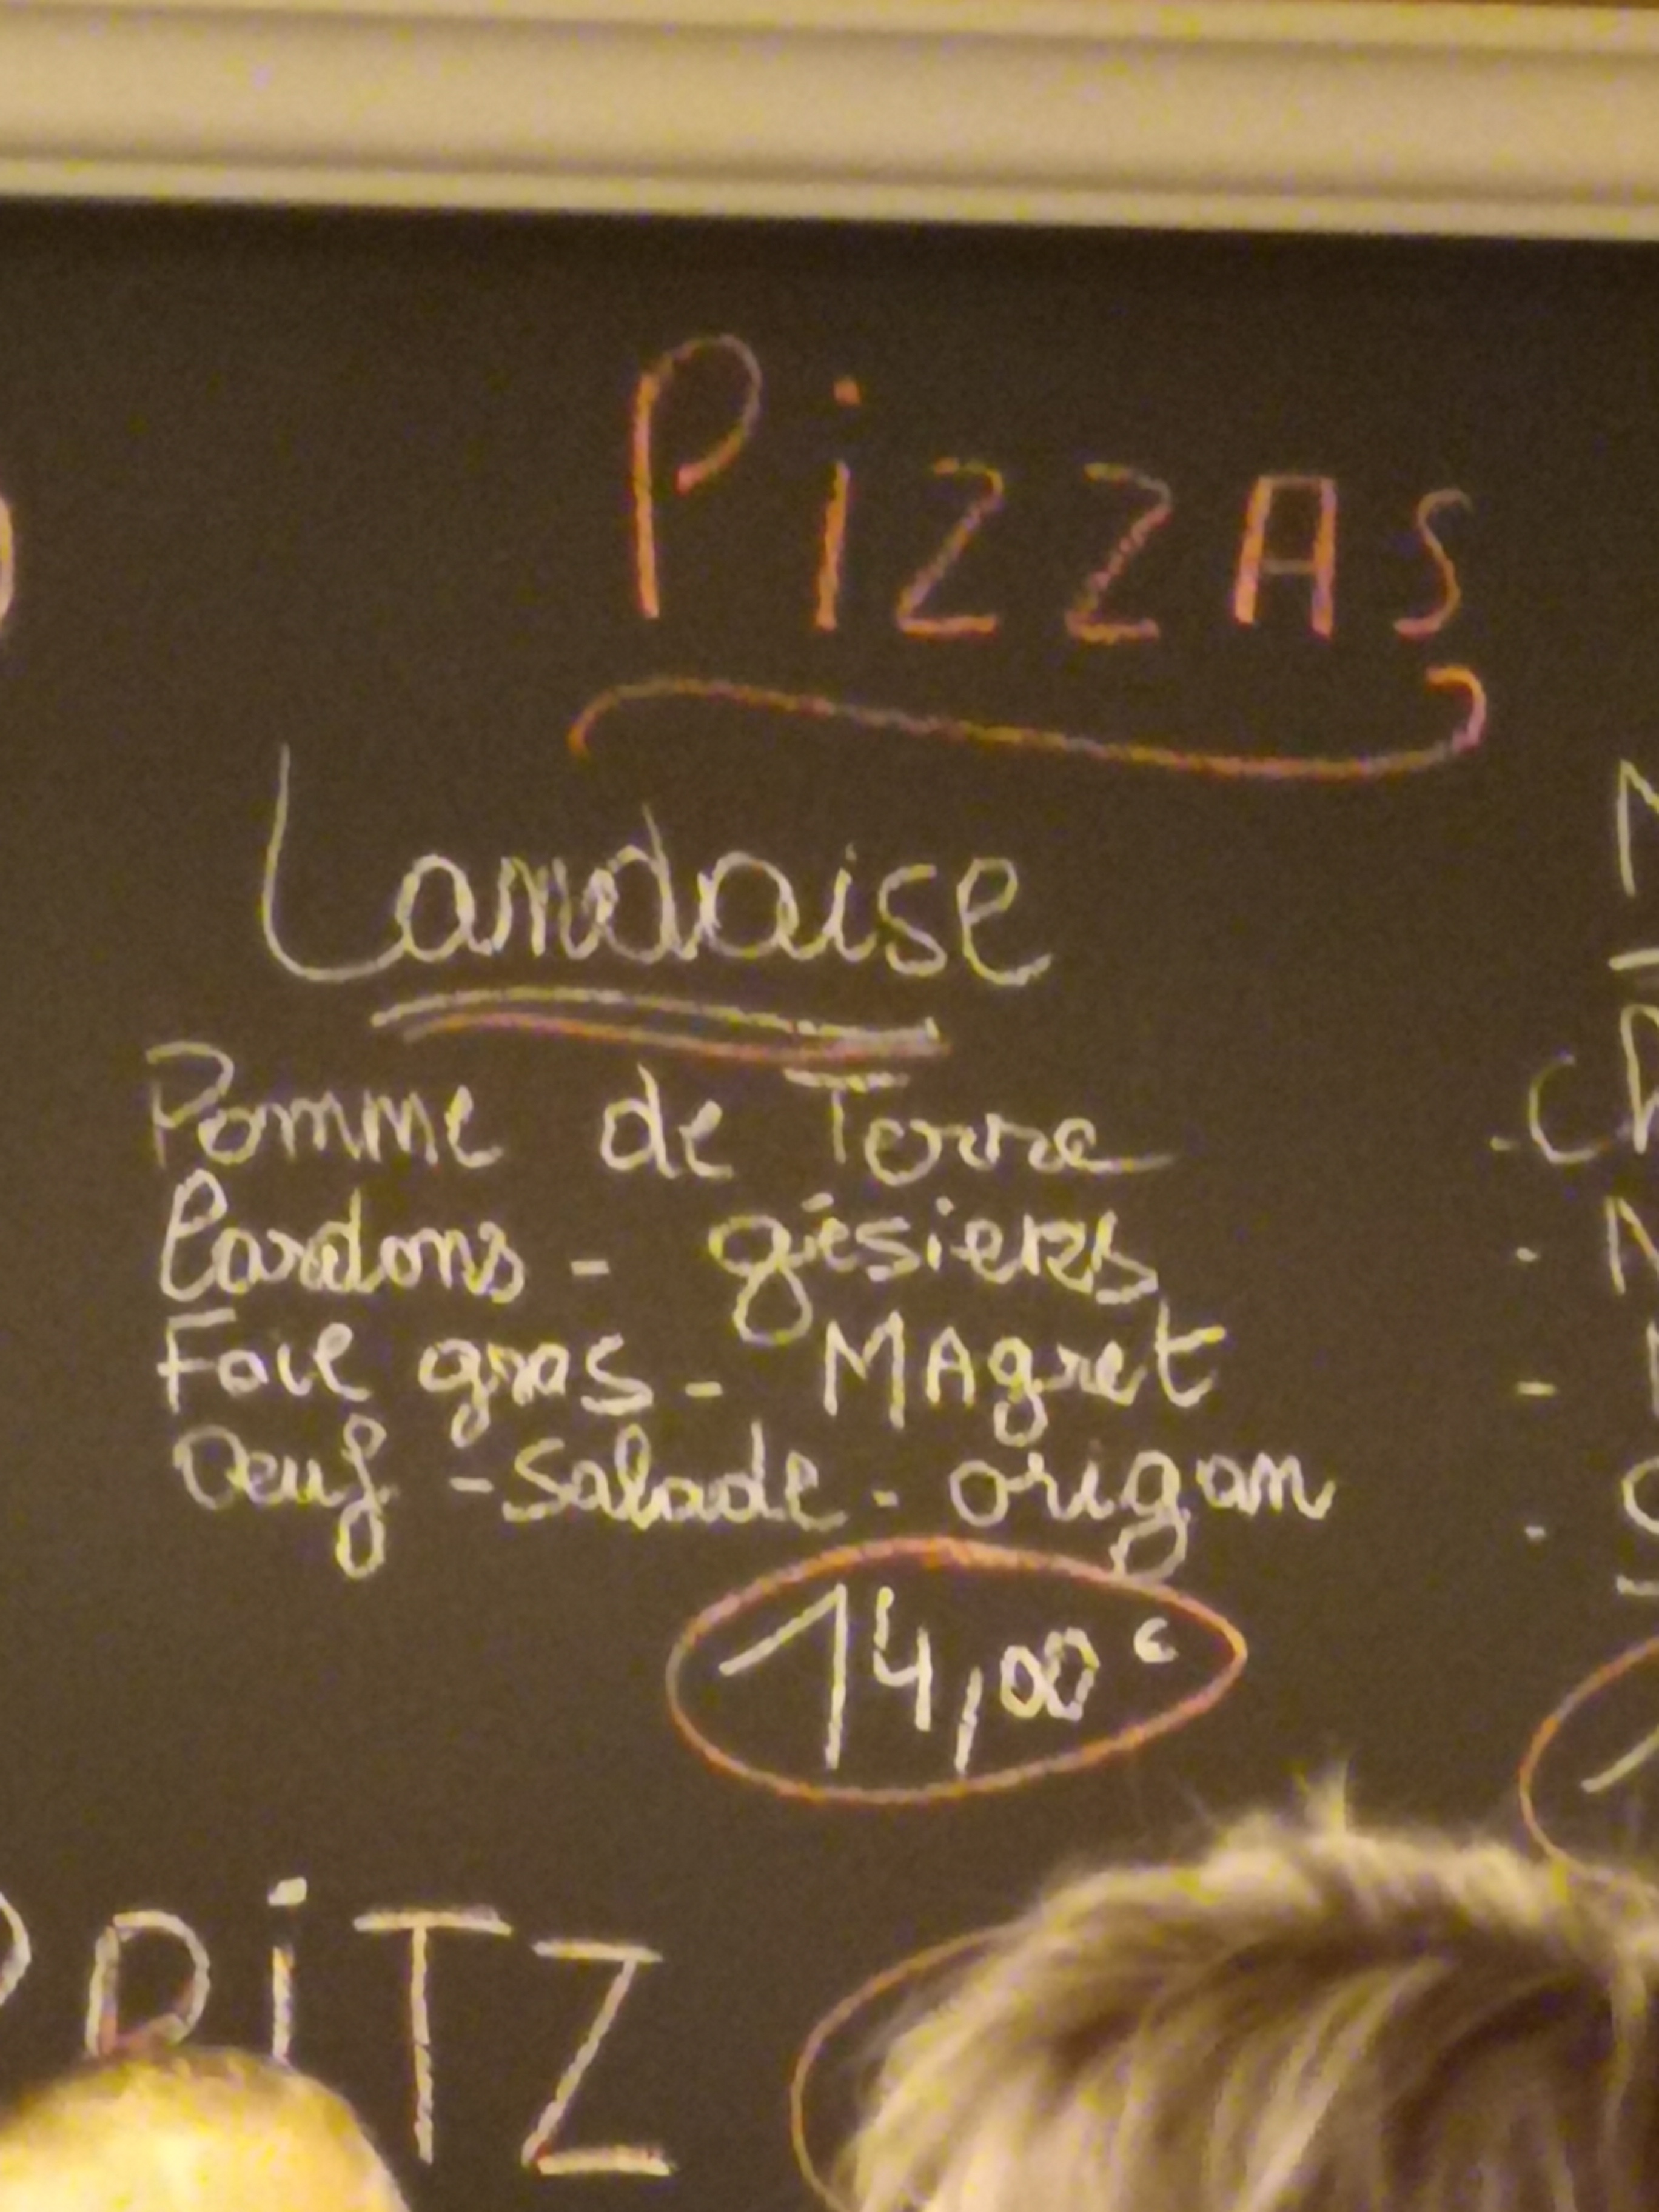 PiZZAS
Landaise
Pomme de Terre
lardons - gésiers
Foie gras - MAgret
Oeuf - Salade - origan
14,00€
PRiTZ